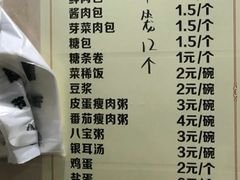 鲜肉包 1.5/个
酱肉包 1.5/个
芽菜肉包 1.5/个
糖包 1.5/个
糖条卷 1元/个
菜稀饭 2元/碗
豆浆 2元/碗
皮蛋瘦肉粥 3元/碗
番茄瘦肉粥 4元/碗
八宝粥 3元/碗
银耳汤 3元/碗
鸡蛋 2元/
盐蛋
12
个